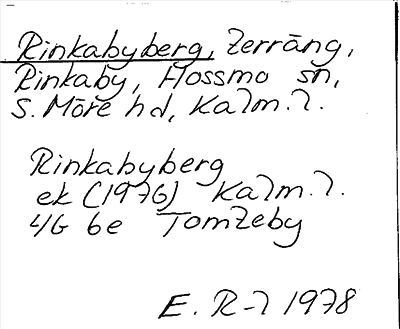 Rinkabyberg, Terräng,
Rinkaby, Hossmo sn,
S. Möre hd, Kalm. l.
Rinkabyberg
ek (1976) Kalm. l.
4G 6e Tomteby
E. R-l 1978